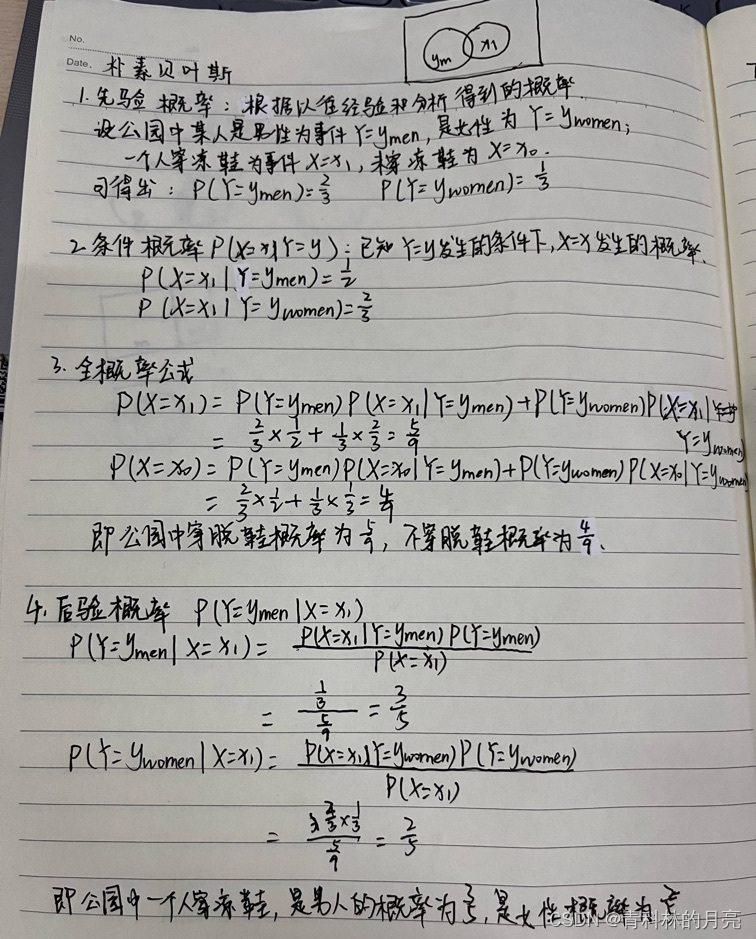 No.
Date.
朴素贝叶斯
ym x₁
1. 先验概率：根据以往经验和分析得到的概率
设公园中某人是男性为事件 Y=ymen，是女性为 Y=ywomen；
一个人穿凉鞋为事件 X=x₁，未穿凉鞋为 X=x₀.
可得出：P(Y=ymen)=2/3 P(Y=ywomen)=1/3
2. 条件概率 P(X=x|Y=y)：已知 Y=y发生的条件下，X=x发生的概率.
P(X=x₁|Y=ymen)=1/2
P(X=x₁|Y=ywomen)=2/3
3. 全概率公式
P(X=x₁) = P(Y=ymen)P(X=x₁|Y=ymen)+P(Y=ywomen)P(X=x₁|
Y=ywomen)
= 2/3 × 1/2 + 1/3 × 2/3 = 5/9
P(X=x₀) = P(Y=ymen)P(X=x₀|Y=ymen)+P(Y=ywomen)P(X=x₀|Y=ywomen)
= 2/3 × 1/2 + 1/3 × 1/3 = 4/9
即公园中穿脱鞋概率为5/9，不穿脱鞋概率为4/9.
4. 后验概率 P(Y=ymen|X=x₁)
P(Y=ymen|X=x₁) = P(X=x₁|Y=ymen)P(Y=ymen) / P(X=x₁)
= 1/3 / 5/9 = 3/5
P(Y=ywomen|X=x₁) = P(X=x₁|Y=ywomen)P(Y=ywomen) / P(X=x₁)
= 2/3 × 1/3 / 5/9 = 2/5
即公园中一个人穿凉鞋，是男人的概率为3/5，是女性概率为2/5
CSDN @青科林的月亮